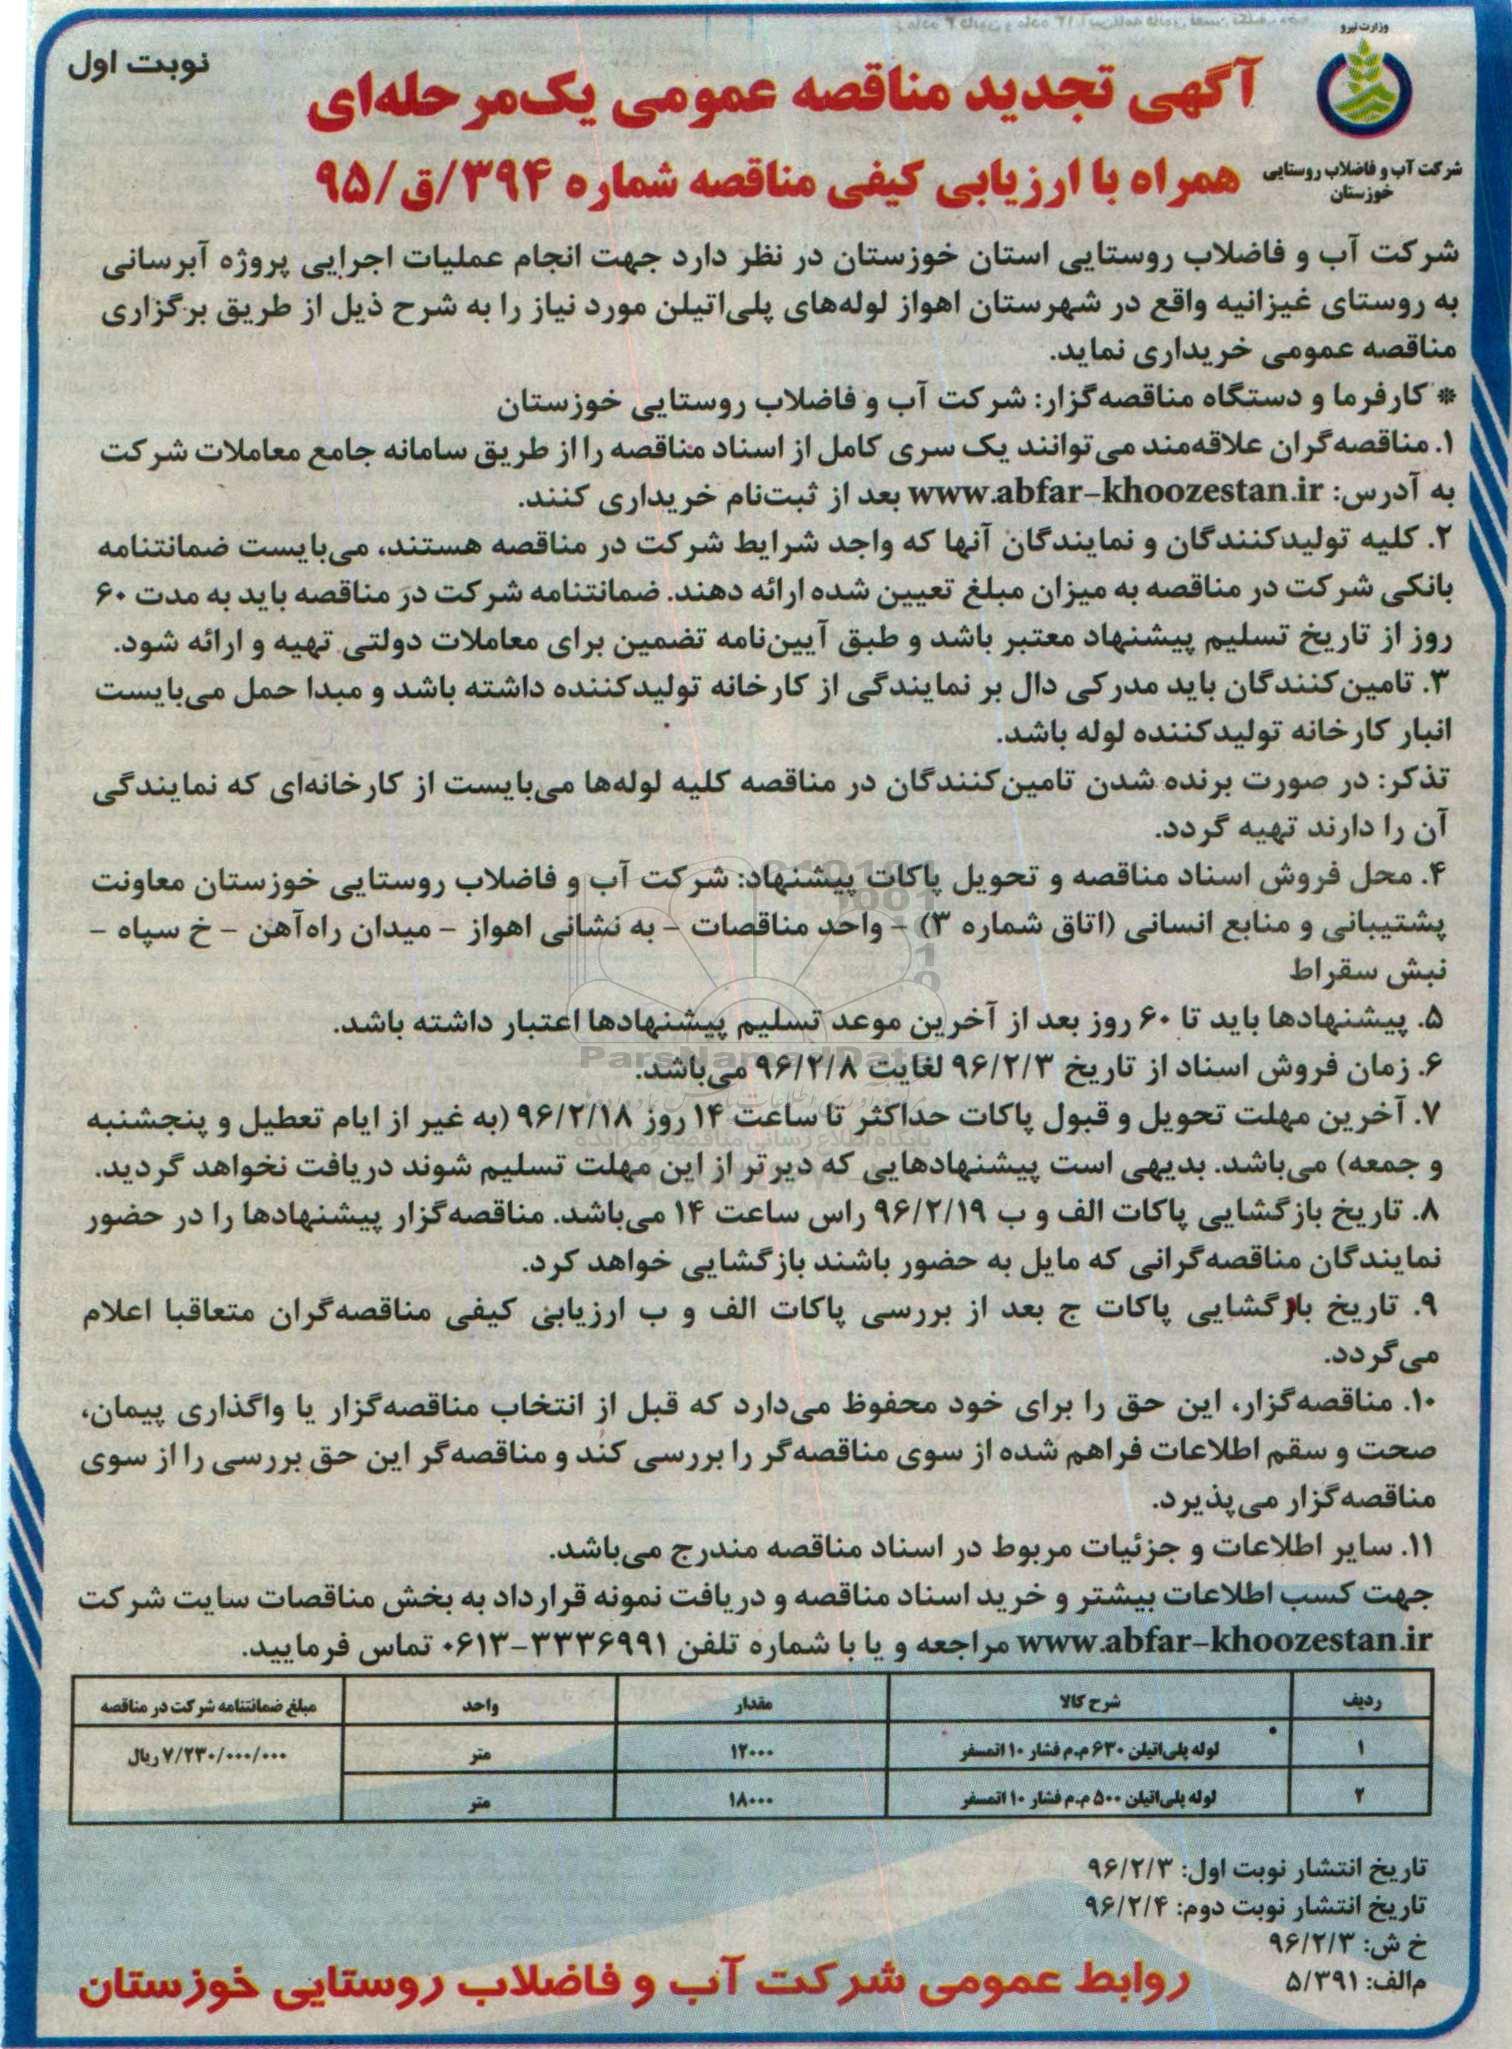 وزارت نیرو
شرکت آب و فاضلاب روستایی
خوزستان
نوبت اول
آگهی تجدید مناقصه عمومی یک‌مرحله‌ای
همراه با ارزیابی کیفی مناقصه شماره ۳۹۴/ق/۹۵
شرکت آب و فاضلاب روستایی استان خوزستان در نظر دارد جهت انجام عملیات اجرایی پروژه آبرسانی
به روستای غیزانیه واقع در شهرستان اهواز لوله‌های پلی‌اتیلن مورد نیاز را به شرح ذیل از طریق برگزاری
مناقصه عمومی خریداری نماید.
* کارفرما و دستگاه مناقصه‌گزار: شرکت آب و فاضلاب روستایی خوزستان
۱. مناقصه‌گران علاقه‌مند می‌توانند یک سری کامل از اسناد مناقصه را از طریق سامانه جامع معاملات شرکت
به آدرس: www.abfar-khoozestan.ir بعد از ثبت‌نام خریداری کنند.
۲. کلیه تولیدکنندگان و نمایندگان آنها که واجد شرایط شرکت در مناقصه هستند، می‌بایست ضمانتنامه
بانکی شرکت در مناقصه به میزان مبلغ تعیین شده ارائه دهند. ضمانتنامه شرکت در مناقصه باید به مدت ۶۰
روز از تاریخ تسلیم پیشنهاد معتبر باشد و طبق آیین‌نامه تضمین برای معاملات دولتی تهیه و ارائه شود.
۳. تامین‌کنندگان باید مدرکی دال بر نمایندگی از کارخانه تولیدکننده داشته باشد و مبدا حمل می‌بایست
انبار کارخانه تولیدکننده لوله باشد.
تذکر: در صورت برنده شدن تامین‌کنندگان در مناقصه کلیه لوله‌ها می‌بایست از کارخانه‌ای که نمایندگی
آن را دارند تهیه گردد.
۴. محل فروش اسناد مناقصه و تحویل پاکات پیشنهاد: شرکت آب و فاضلاب روستایی خوزستان معاونت
پشتیبانی و منابع انسانی (اتاق شماره ۳) - واحد مناقصات - به نشانی اهواز - میدان راه‌آهن - خ سپاه -
نبش سقراط
۵. پیشنهادها باید تا ۶۰ روز بعد از آخرین موعد تسلیم پیشنهادها اعتبار داشته باشد.
۶. زمان فروش اسناد از تاریخ ۹۶/۲/۳ لغایت ۹۶/۲/۸ می‌باشد.
۷. آخرین مهلت تحویل و قبول پاکات حداکثر تا ساعت ۱۴ روز ۹۶/۲/۱۸ (به غیر از ایام تعطیل و پنجشنبه
و جمعه) می‌باشد. بدیهی است پیشنهادهایی که دیرتر از این مهلت تسلیم شوند دریافت نخواهد گردید.
۸. تاریخ بازگشایی پاکات الف و ب ۹۶/۲/۱۹ راس ساعت ۱۴ می‌باشد. مناقصه‌گزار پیشنهادها را در حضور
نمایندگان مناقصه‌گرانی که مایل به حضور باشند بازگشایی خواهد کرد.
۹. تاریخ بازگشایی پاکات ج بعد از بررسی پاکات الف و ب ارزیابی کیفی مناقصه‌گران متعاقبا اعلام
می‌گردد.
۱۰. مناقصه‌گزار، این حق را برای خود محفوظ می‌دارد که قبل از انتخاب مناقصه‌گزار یا واگذاری پیمان،
صحت و سقم اطلاعات فراهم شده از سوی مناقصه‌گر را بررسی کند و مناقصه‌گر این حق بررسی را از سوی
مناقصه‌گزار می‌پذیرد.
۱۱. سایر اطلاعات و جزئیات مربوط در اسناد مناقصه مندرج می‌باشد.
جهت کسب اطلاعات بیشتر و خرید اسناد مناقصه و دریافت نمونه قرارداد به بخش مناقصات سایت شرکت
www.abfar-khoozestan.ir مراجعه و یا با شماره تلفن ۳۳۳۶۹۹۱-۰۶۱۳ تماس فرمایید.
ردیف شرح کالا مقدار واحد مبلغ ضمانتنامه شرکت در مناقصه
۱ لوله پلی‌اتیلن ۶۳۰ م.م فشار ۱۰ اتمسفر ۱۲۰۰۰ متر ۷/۲۳۰/۰۰۰/۰۰۰ ریال
۲ لوله پلی‌اتیلن ۵۰۰ م.م فشار ۱۰ اتمسفر ۱۸۰۰۰ متر
تاریخ انتشار نوبت اول: ۹۶/۲/۳
تاریخ انتشار نوبت دوم: ۹۶/۲/۴
خ ش: ۹۶/۲/۳
م‌الف: ۵/۳۹۱
روابط عمومی شرکت آب و فاضلاب روستایی خوزستان